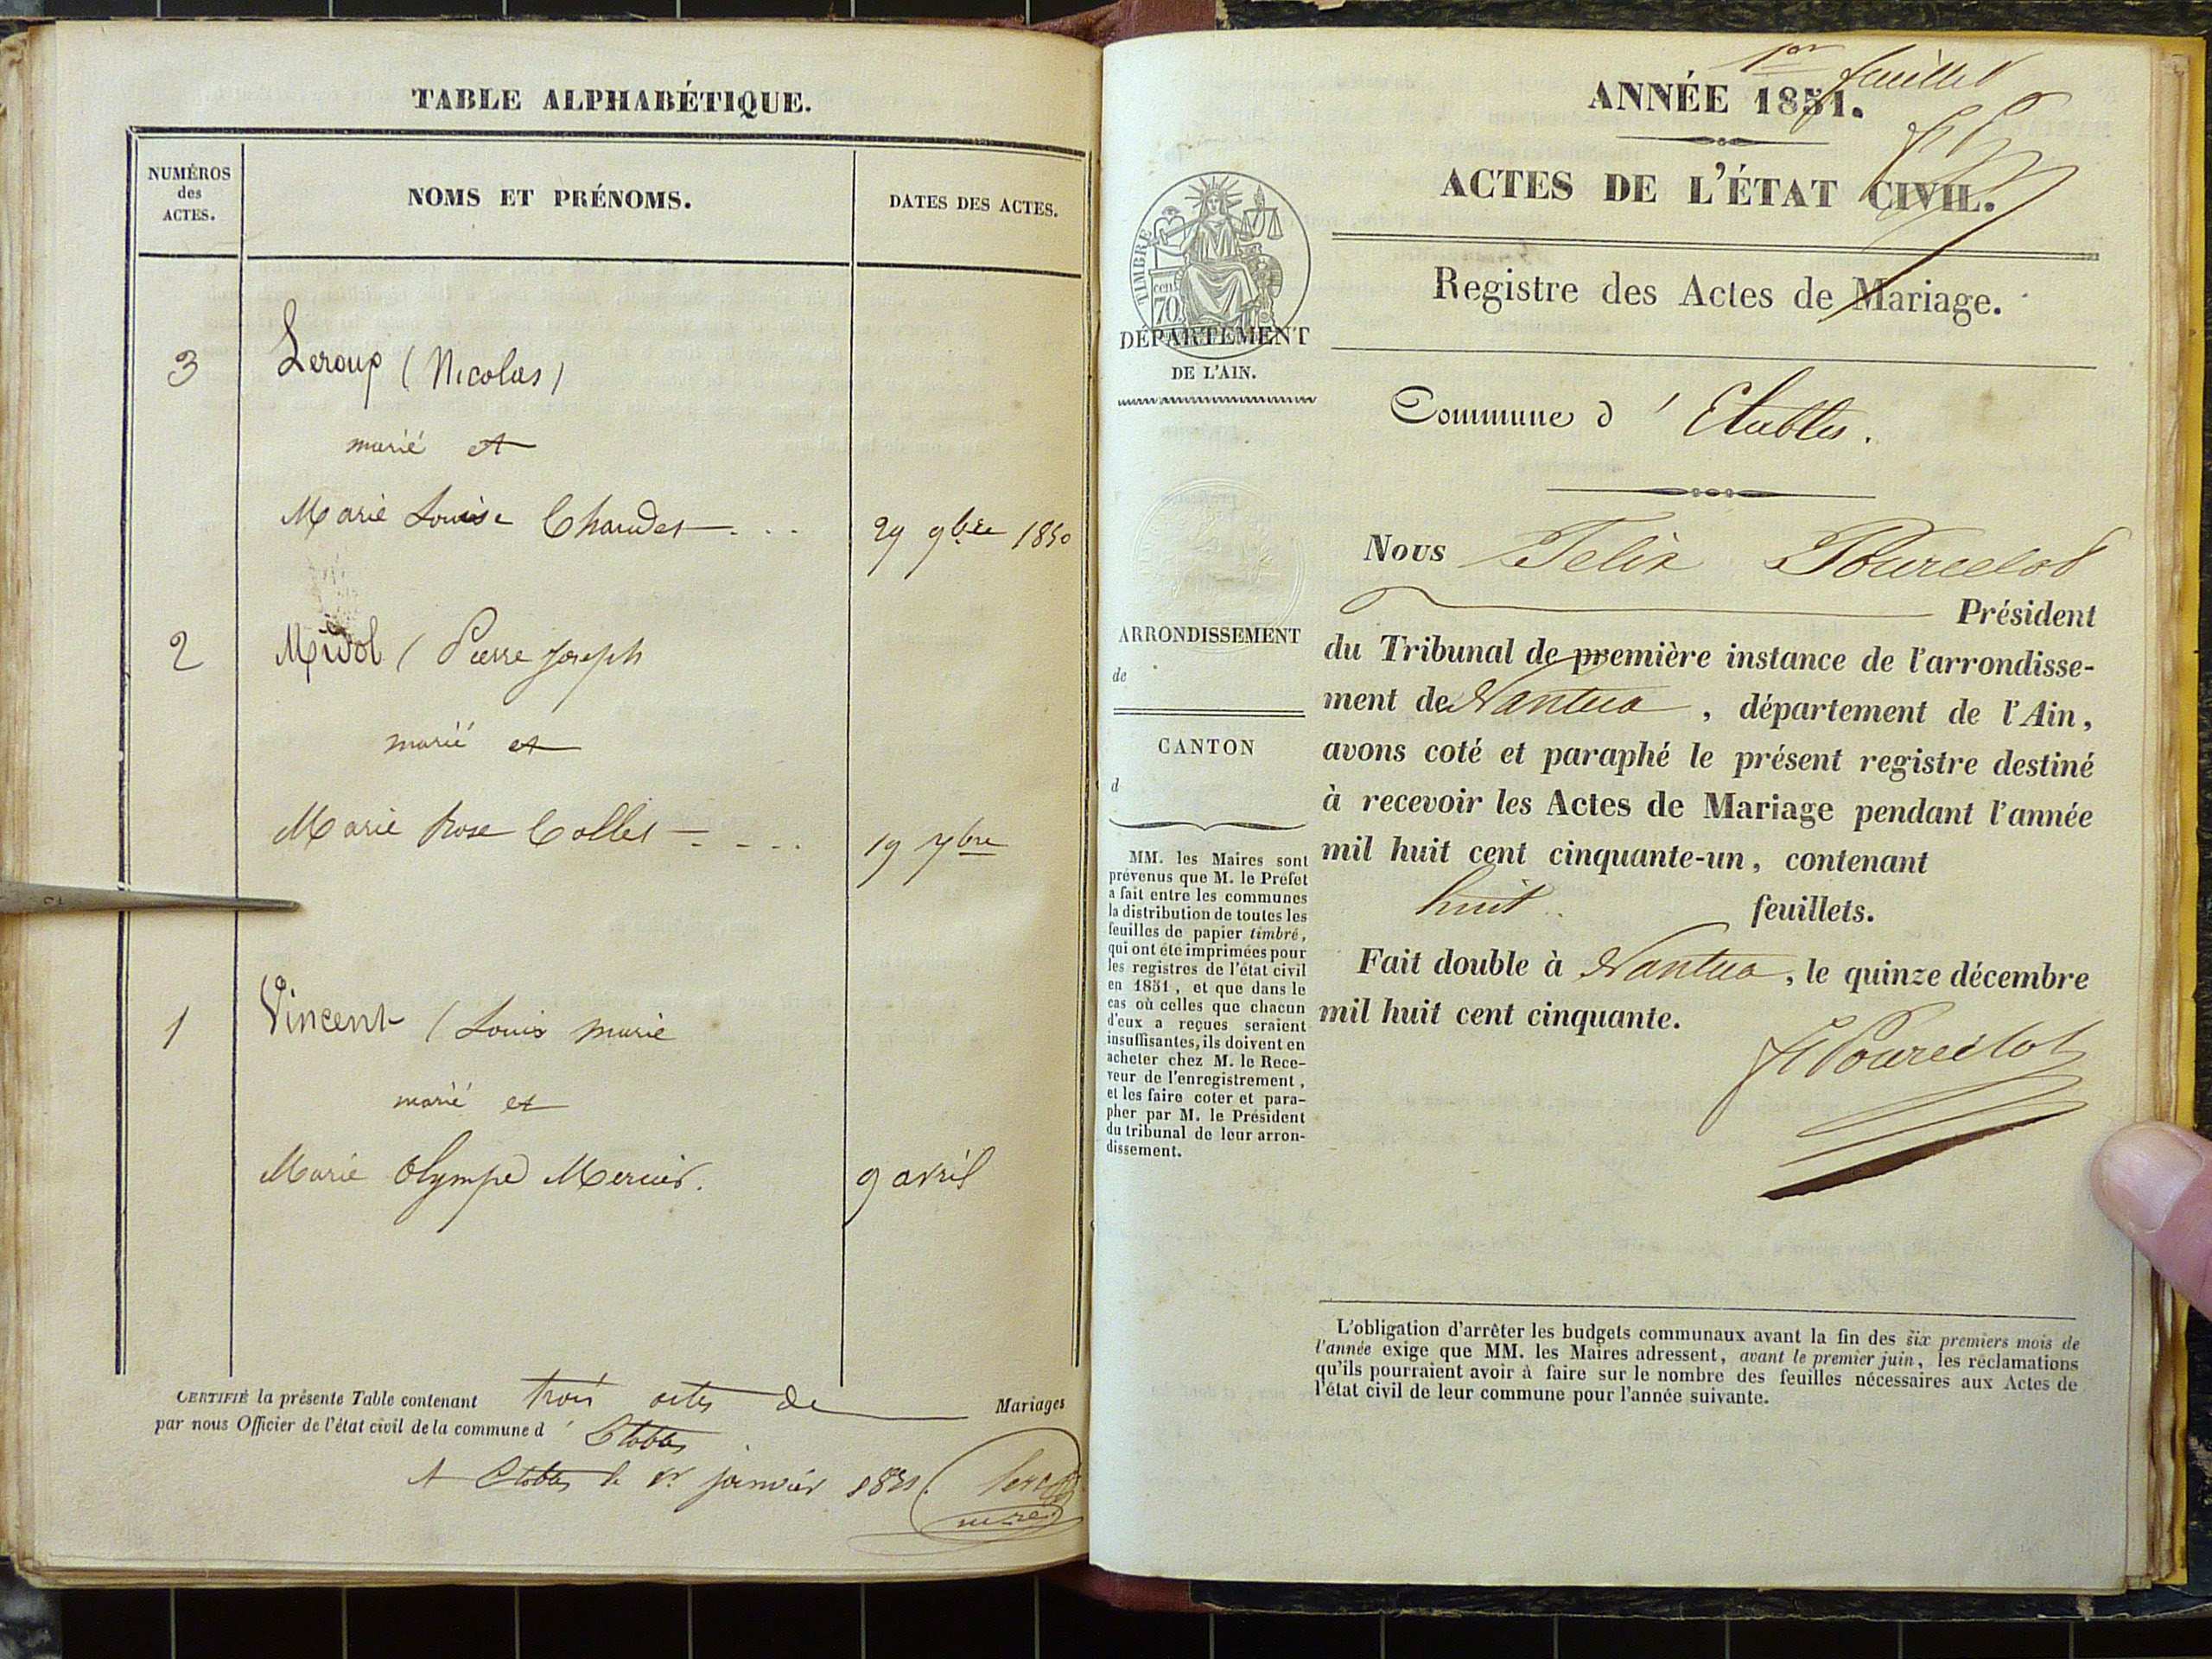 TABLE ALPHABÉTIQUE.
NUMÉROS
des
ACTES.
NOMS ET PRÉNOMS.
DATES DES ACTES.
3
Leroup (Nicolas)
marié et
Marie Louise Chaudet - . . .
29 9bre 1850
2
Midol (Pierre Joseph
marié et
Marie Rose Collet - - - . .
19 7bre
1
Vincent (Louis Marie
marié et
Marie Olympe Mercier.
9 avril
CERTIFIÉ la présente Table contenant trois actes de Mariages
par nous Officier de l'état civil de la commune d' Etables
A Etables le 1er janvier 1851.
1er feuillet
ANNÉE 1851.
ACTES DE L'ÉTAT CIVIL.
Registre des Actes de Mariage.
TIMBRE
70 cent
DÉPARTEMENT
DE L'AIN.
Commune d'Etables.
Nous Felix Pourcelot
Président
du Tribunal de première instance de l'arrondisse-
ment de Nantua, département de l'Ain,
avons coté et paraphé le présent registre destiné
à recevoir les Actes de Mariage pendant l'année
mil huit cent cinquante-un, contenant
huit feuillets.
Fait double à Nantua, le quinze décembre
mil huit cent cinquante.
F Pourcelot
ARRONDISSEMENT
de
CANTON
d
MM. les Maires sont
prévenus que M. le Préfet
a fait entre les communes
la distribution de toutes les
feuilles de papier timbré,
qui ont été imprimées pour
les registres de l'état civil
en 1851, et que dans le
cas où celles que chacun
d'eux a reçues seraient
insuffisantes, ils doivent en
acheter chez M. le Rece-
veur de l'enregistrement,
et les faire coter et para-
pher par M. le Président
du tribunal de leur arron-
dissement.
L'obligation d'arrêter les budgets communaux avant la fin des six premiers mois de
l'année exige que MM. les Maires adressent, avant le premier juin, les réclamations
qu'ils pourraient avoir à faire sur le nombre des feuilles nécessaires aux Actes de
l'état civil de leur commune pour l'année suivante.